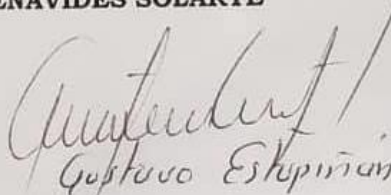 ENAVIDES SOLARTE
Gustavo Estupiñan